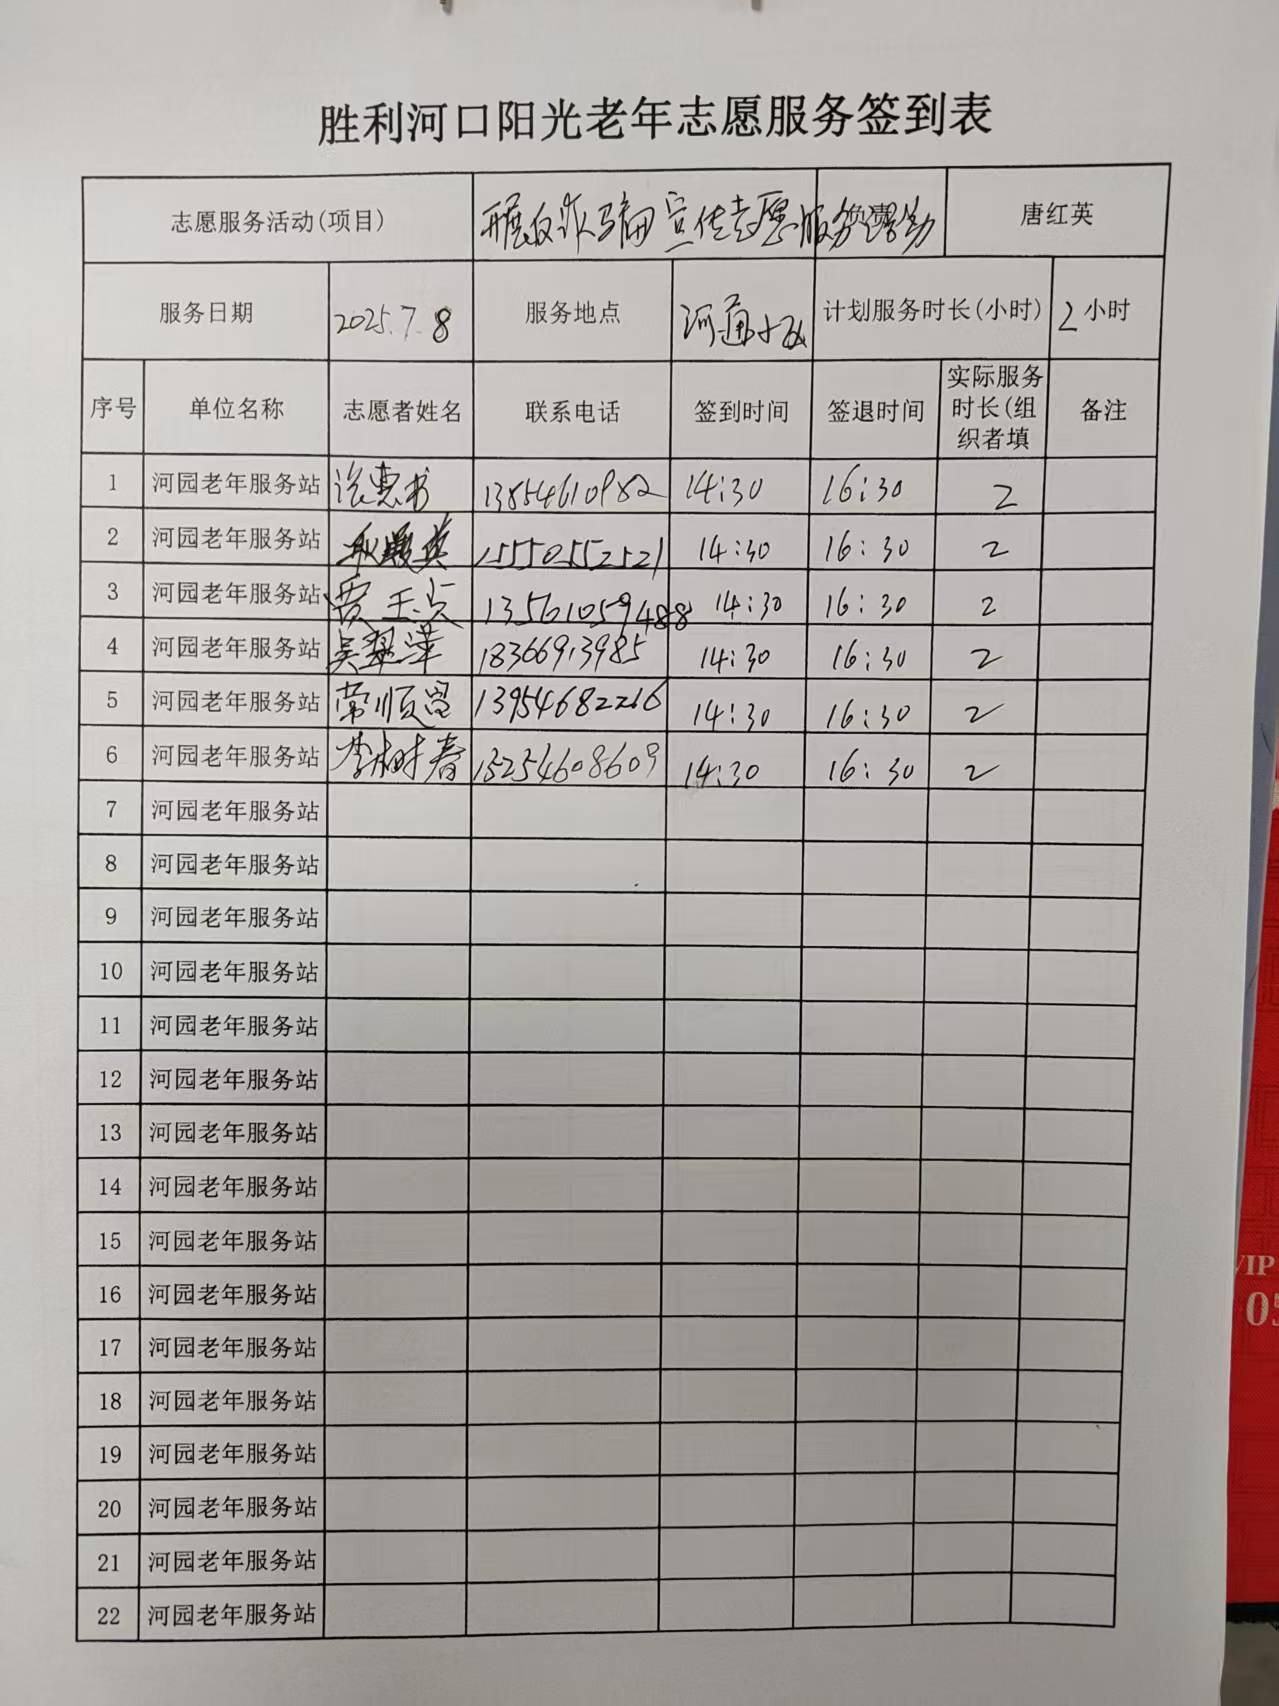 胜利河口阳光老年志愿服务签到表
志愿服务活动(项目) 开展反诈骗宣传志愿服务活动 唐红英
服务日期 2025.7.8 服务地点 河 小区 计划服务时长(小时) 2小时
序号 单位名称 志愿者姓名 联系电话 签到时间 签退时间 实际服务时长(组织者填 备注
1 河园老年服务站 惠书 13854610982 14:30 16:30 2
2 河园老年服务站 英 15550552521 14:30 16:30 2
3 河园老年服务站 贾玉贞 13561059488 14:30 16:30 2
4 河园老年服务站 吴翠萍 18366913985 14:30 16:30 2
5 河园老年服务站 常顺富 13954682216 14:30 16:30 2
6 河园老年服务站 李树春 15254608609 14:30 16:30 2
7 河园老年服务站
8 河园老年服务站
9 河园老年服务站
10 河园老年服务站
11 河园老年服务站
12 河园老年服务站
13 河园老年服务站
14 河园老年服务站
15 河园老年服务站
16 河园老年服务站
17 河园老年服务站
18 河园老年服务站
19 河园老年服务站
20 河园老年服务站
21 河园老年服务站
22 河园老年服务站
VIP
05